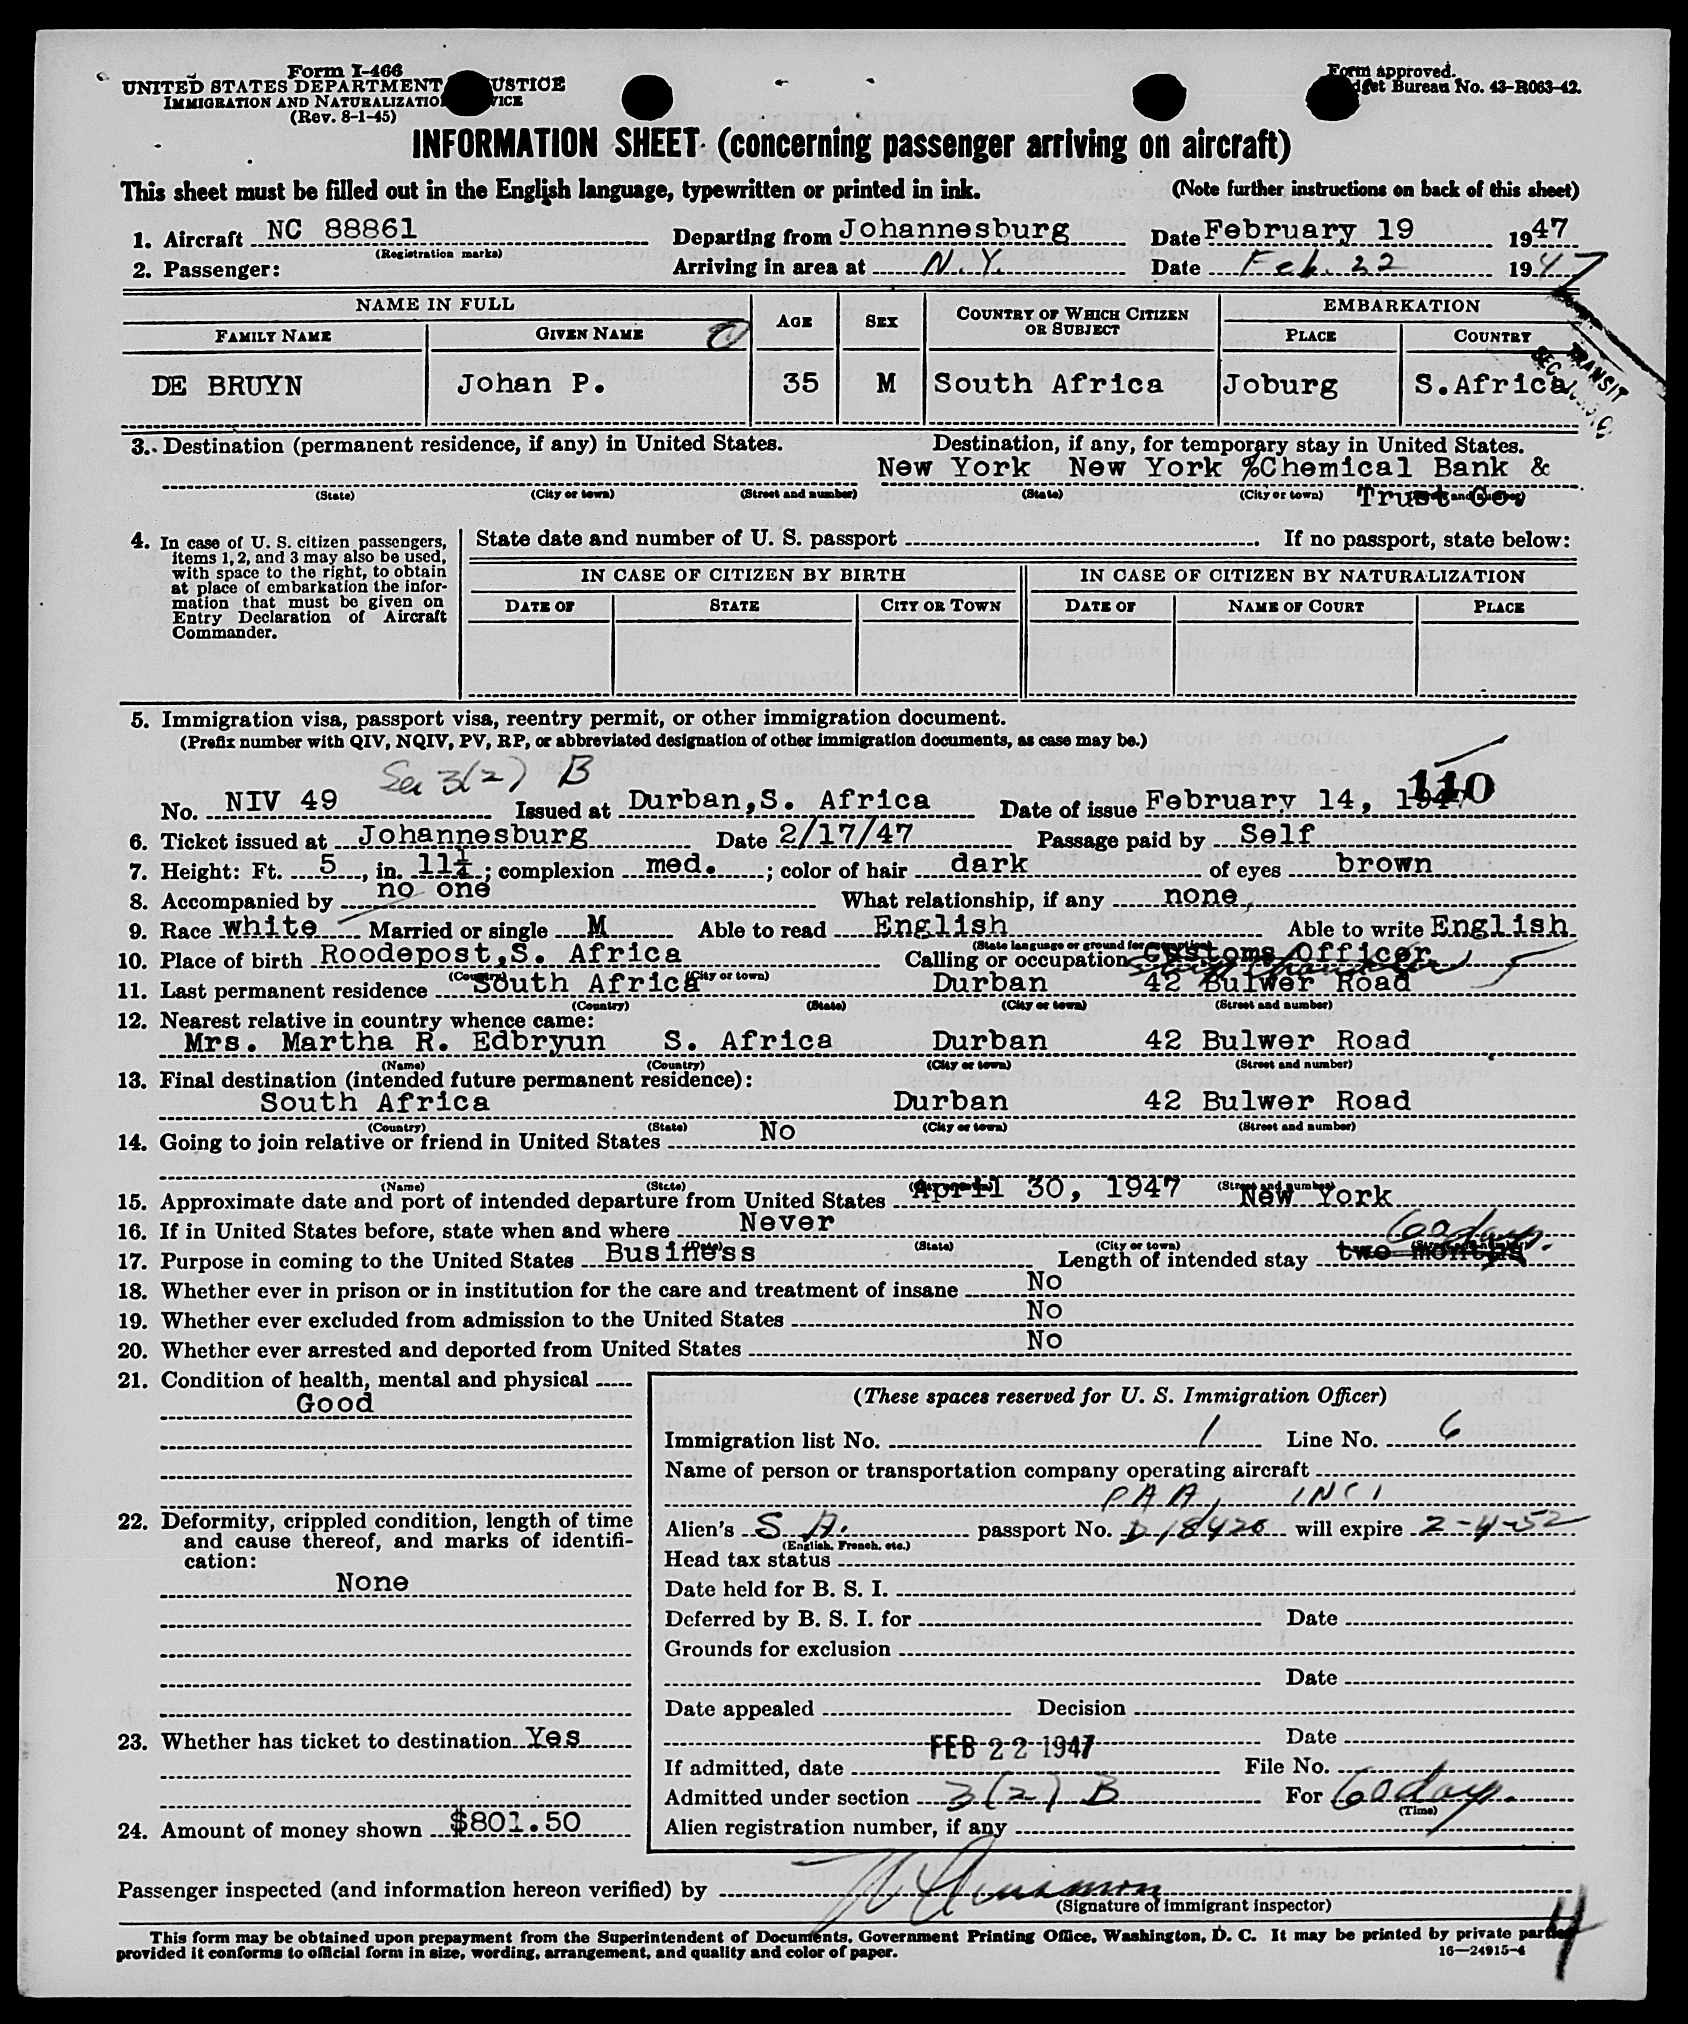 Form I-466
UNITED STATES DEPARTMENT JUSTICE
IMMIGRATION AND NATURALIZATION
(Rev. 8-1-45)
Form approved.
Budget Bureau No. 43-R063-42.
INFORMATION SHEET (concerning passenger arriving on aircraft)
This sheet must be filled out in the English language, typewritten or printed in ink. (Note further instructions on back of this sheet)
1. Aircraft NC 88861 Departing from Johannesburg Date February 19 1947
(Registration marks)
2. Passenger: Arriving in area at N.Y. Date Feb. 22 1947
NAME IN FULL AGE SEX COUNTRY OF WHICH CITIZEN OR SUBJECT EMBARKATION
FAMILY NAME GIVEN NAME PLACE COUNTRY
TRANSIT
SEC.
DE BRUYN Johan P. 35 M South Africa Joburg S.Africa
3. Destination (permanent residence, if any) in United States. Destination, if any, for temporary stay in United States.
New York New York %Chemical Bank &
(State) (City or town) (Street and number) (State) (City or town) (Street and number) Trust Co.
4. In case of U. S. citizen passengers, items 1, 2, and 3 may also be used, with space to the right, to obtain at place of embarkation the information that must be given on Entry Declaration of Aircraft Commander.
State date and number of U. S. passport If no passport, state below:
IN CASE OF CITIZEN BY BIRTH IN CASE OF CITIZEN BY NATURALIZATION
DATE OF STATE CITY OR TOWN DATE OF NAME OF COURT PLACE
5. Immigration visa, passport visa, reentry permit, or other immigration document.
(Prefix number with QIV, NQIV, PV, RP, or abbreviated designation of other immigration documents, as case may be.)
Sec 3(2) B
110
No. NIV 49 Issued at Durban,S. Africa Date of issue February 14, 1947
6. Ticket issued at Johannesburg Date 2/17/47 Passage paid by Self
7. Height: Ft. 5, in. 11¼; complexion med.; color of hair dark of eyes brown
8. Accompanied by no one What relationship, if any none
9. Race white Married or single M Able to read English Able to write English
(State language or ground for exemption)
10. Place of birth Roodepost,S. Africa Calling or occupation Customs Officer
(Country) (City or town)
11. Last permanent residence South Africa Durban 42 Bulwer Road
(Country) (State) (City or town) (Street and number)
12. Nearest relative in country whence came:
Mrs. Martha R. Edbryun S. Africa Durban 42 Bulwer Road
(Name) (Country) (City or town) (Street and number)
13. Final destination (intended future permanent residence):
South Africa Durban 42 Bulwer Road
(Country) (State) (City or town) (Street and number)
14. Going to join relative or friend in United States No
(Name) (State) (City or town) (Street and number)
15. Approximate date and port of intended departure from United States April 30, 1947 New York
16. If in United States before, state when and where Never
(Date) (State) (City or town) (Street and number)
60 days.
17. Purpose in coming to the United States Business Length of intended stay two months
18. Whether ever in prison or in institution for the care and treatment of insane No
19. Whether ever excluded from admission to the United States No
20. Whether ever arrested and deported from United States No
21. Condition of health, mental and physical
Good
22. Deformity, crippled condition, length of time and cause thereof, and marks of identification:
None
23. Whether has ticket to destination Yes
24. Amount of money shown $801.50
(These spaces reserved for U. S. Immigration Officer)
Immigration list No. 1 Line No. 6
Name of person or transportation company operating aircraft
PAA, INC.
Alien's S A. passport No. D18426 will expire 2-4-52
(English, French, etc.)
Head tax status
Date held for B. S. I.
Deferred by B. S. I. for Date
Grounds for exclusion
Date
Date appealed Decision
Date
If admitted, date FEB 22 1947 File No.
Admitted under section 3(2) B For 60 days.
(Time)
Alien registration number, if any
Passenger inspected (and information hereon verified) by
(Signature of immigrant inspector)
This form may be obtained upon prepayment from the Superintendent of Documents, Government Printing Office, Washington, D. C. It may be printed by private parties
provided it conforms to official form in size, wording, arrangement, and quality and color of paper. 16—24915-4
4